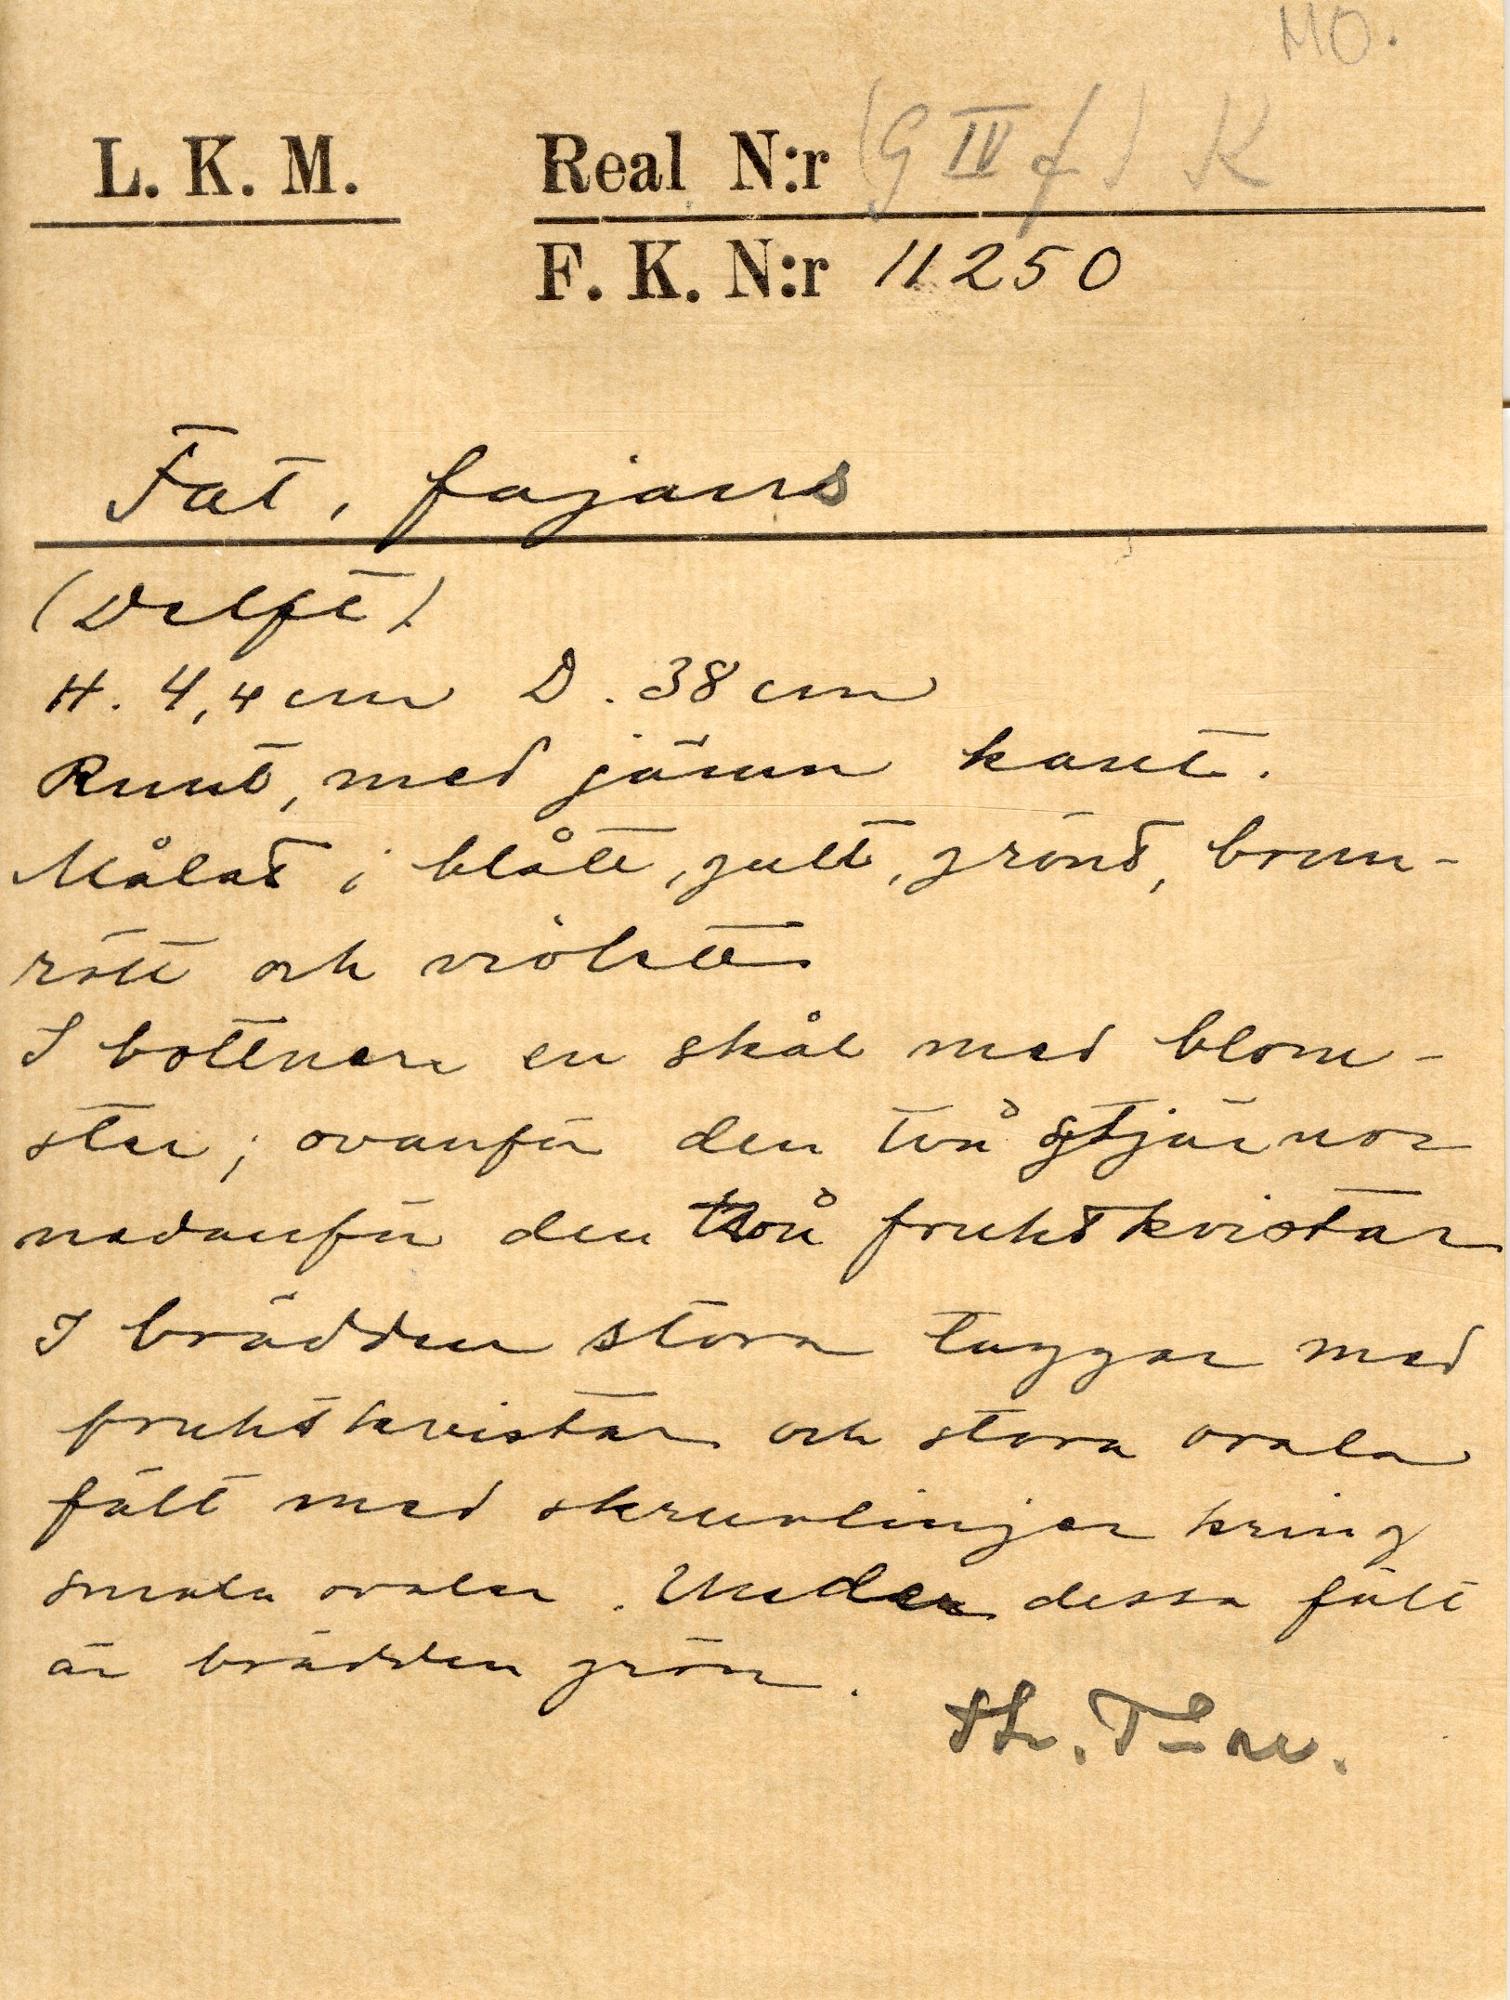 MO.
L. K. M. Real N:r (G IV f) K
F. K. N:r 11250
Fat, fajans
(Delft)
H. 4,4 cm D. 38 cm
Runt, med jämn kant.
Målat i blått, gult, grönt, brun-
rött och violett
I bottnen en skål med blom-
ster; ovanför den två stjärnor
nedanför den två fruktkvistar
I brädden stora taggar med
fruktkvistar och stora ovala
fält med skruvlinjer kring
smala ovaler. Under dessa fält
är brädden grön.